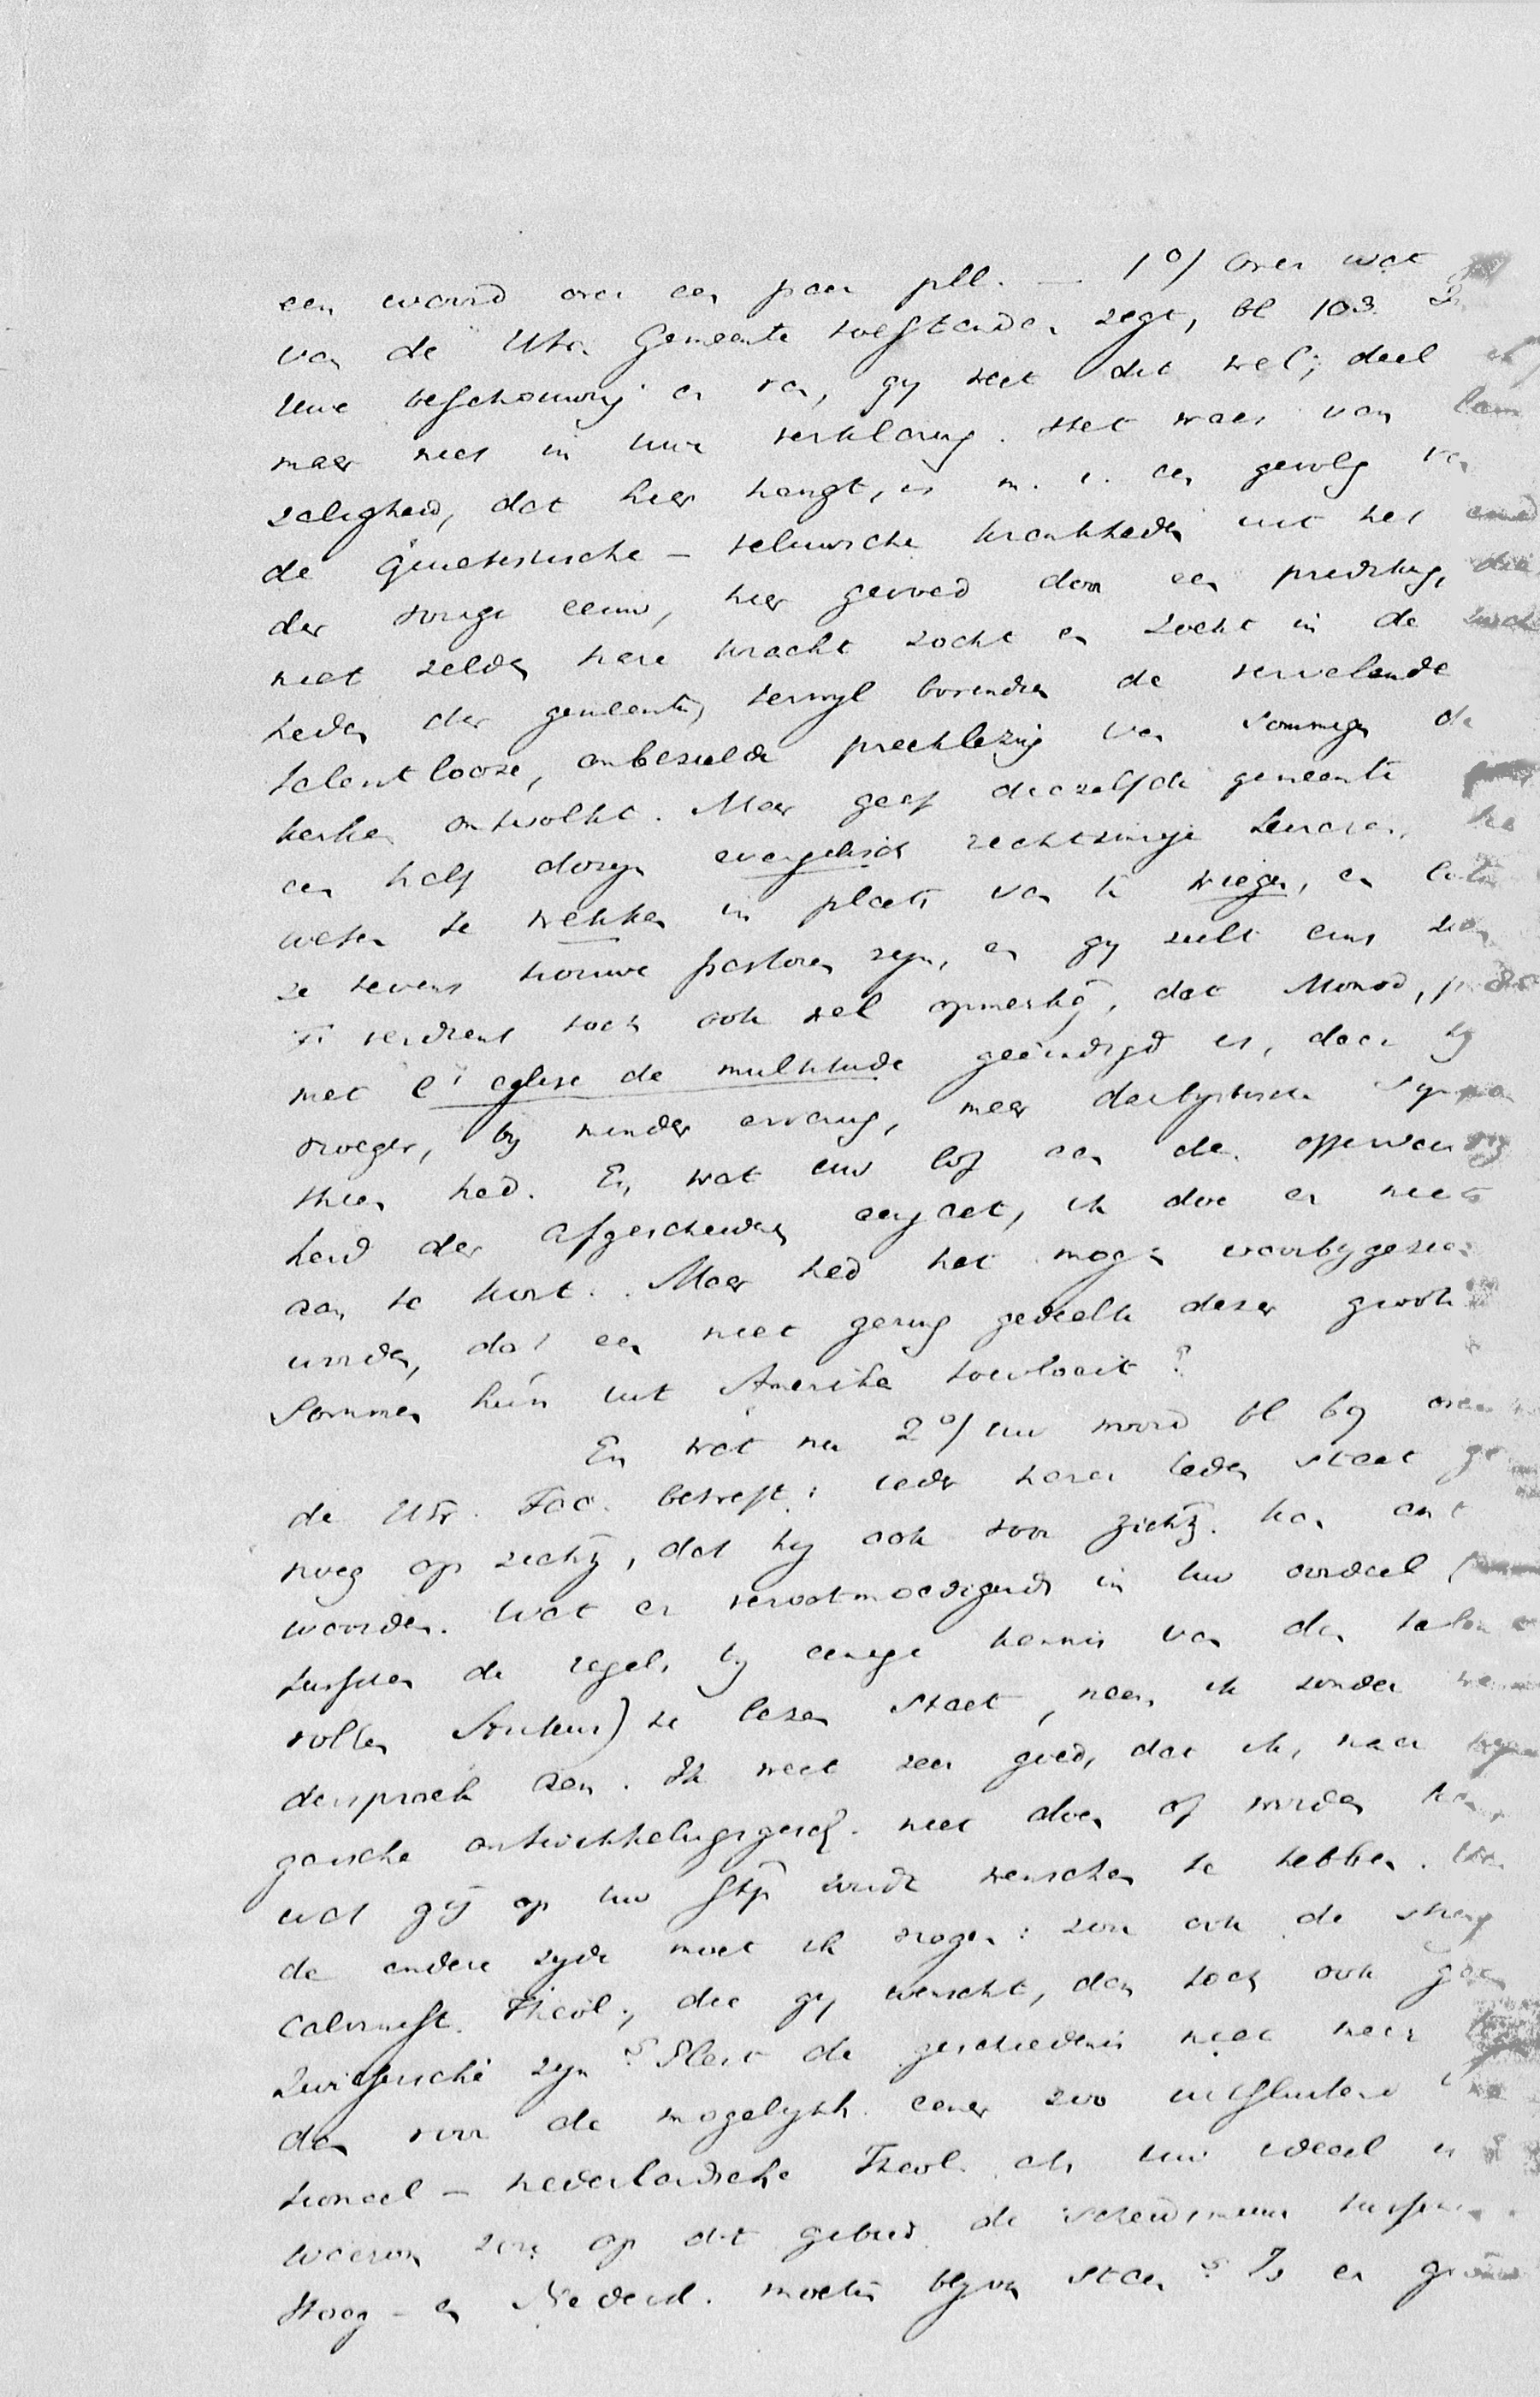 een woord over een paar pll. — 1°/ Over wat
van de Utr. Gemeente toestanden zegt, bl 103. In
Uwe beschouwing er van, gy weet dit wel, deel
maar niet in Uwe verklaring. Het waas van
zaligheid, dat hier hangt, is m. i. een gevolg van
de Quietistische – Veluwsche krankheden uit het
der vorige eeuw, hier gevoed door een prediking, die
niet zelden hare kracht zocht en zoekt in de
heden der gemeente, terwyl bovendien de vervelende
talentlooze, onbezielde preeklezing van sommigen de
kerken ontvolkt. Maar geef diezelfde gemeente
een half dozyn evangelisch rechtzinnige Leeraren,
weten te wekken in plaats van te wiegen, en
ze tevens trouwe pastoren zyn, en gy zult eens zien
't verdient toch ook wel opmerking, dat Monod,
met l'église de multitude geëindigd is, daar hy
vroeger, by minder ervaring, meer darbystische
thien had. En wat uw lof aan de offervaardig
heid der afgescheidenen aangaat, ik doe er niets
aan te kort. Maar had het mogen voorbygezien
worden, dat een niet gering gedeelte dezer groote
Sommen hun uit Amerika toevloeit?
En wat nu 2°/ uw woord bl 69 over
de Utr. Fac. betreft: ieder harer leden staat ge
noeg op zichz, dat hy ook voor zichz. kan ant
woorden. Wat er verootmoedigends in uw oordeel
tusschen de regels by eenige kennis van den talent
vollen Auteur) te lezen staat, neem ik zonder
derspraak aan. Ik weet zeer goed, dat ik, naar
gansche ontwikkelingsgesch. niet doen of worden kan,
wat gy op uw stp zoudt wenschen te hebben. Van
de andere zyde moet ik vragen: zou ook de streng
Calvinist. Theol., die gy wenscht, dan toch ook geen
Zwitsersche zyn? Pleit de geschiedenis niet meer
dan voor de mogelykh. eener zoo uitsluitend
tioneel – nederlandsche Theol. als Uw ideaal is
waarom zou op dit gebied de scheidsmuur tusschen
Hoog – en Nederd. moeten blyven staan? Is er